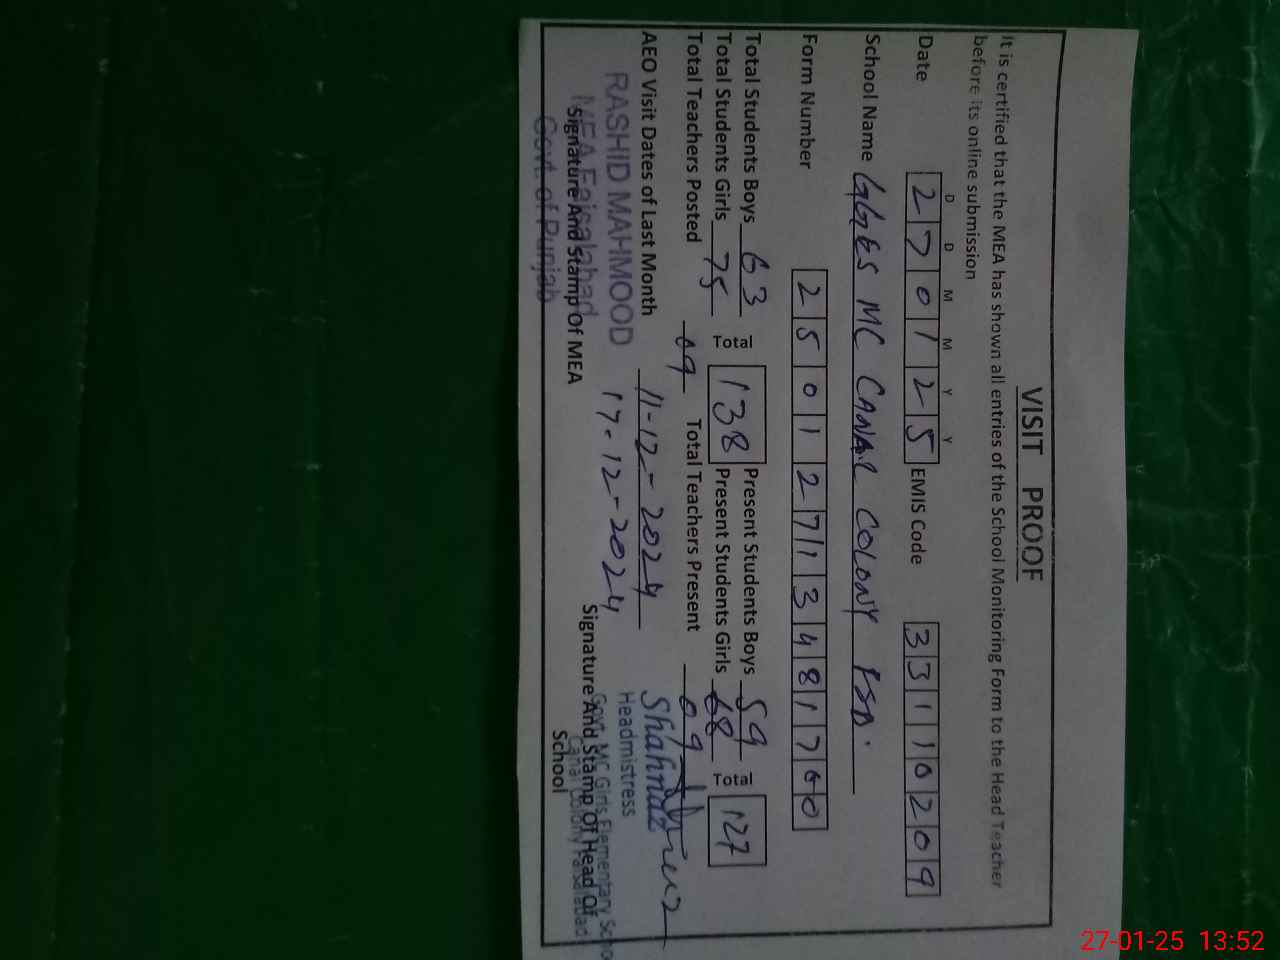 VISIT PROOF
It is certified that the MEA has shown all entries of the School Monitoring Form to the Head Teacher
before its online submission
D D M M Y Y
Date 2 7 0 1 2 5 EMIS Code 3 3 1 1 0 2 0 9
School Name GGES MC CANAL COLONY FSD.
Form Number 2 5 0 1 2 7 1 3 4 8 1 7 0 0
Total Students Boys 63 Total 138 Present Students Boys 59 Total 127
Total Students Girls 75 Present Students Girls 68
Total Teachers Posted 09 Total Teachers Present 09
AEO Visit Dates of Last Month 11-12-2024
17-12-2024
Shahnaz
RASHID MAHMOOD
MEA Faisalabad
Govt. of Punjab
Signature And Stamp Of MEA
Headmistress
Govt. MC Girls Elementary Scho
Canal Colony Faisalabad
Signature And Stamp of Head of
School
27-01-25 13:52